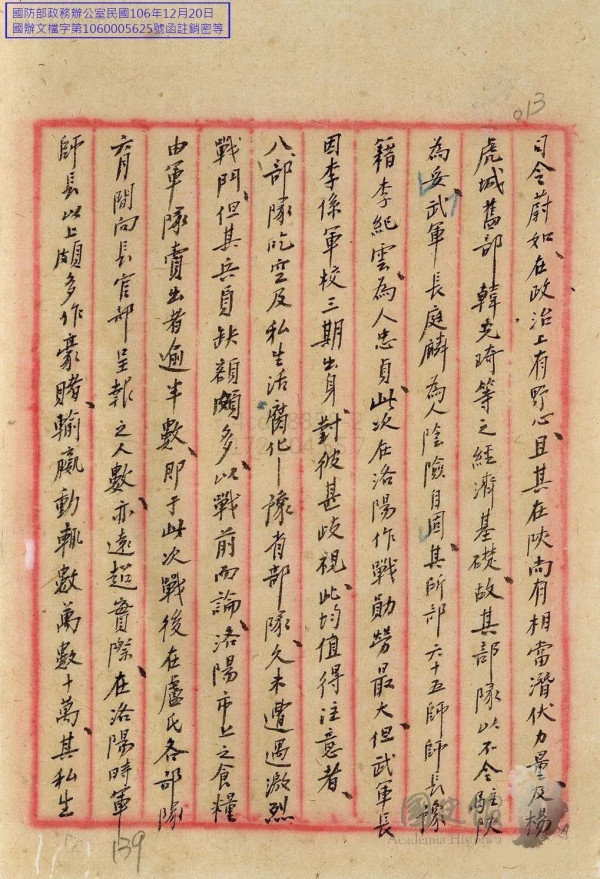 國防部政務辦公室民國106年12月20日
國辦文檔字第1060005625號函註銷密等
013
司令蔚如、在政治上有野心、且其在陝尚有相當潛伏力量、及楊
虎城舊部韓克琦等之經濟基礎、故其部隊以不令駐陝
為妥、武軍長庭麟為人陰險自固、其所部六十五師師長豫
籍李紀雲、為人忠貞、此次在洛陽作戰勛勞最大、但武軍長
因李係軍校三期出身、對彼甚歧視、此均值得注意者、
八、部隊吃空及私生活腐化—豫省部隊、久未遭遇激烈
戰鬥、但其兵員缺額頗多、以戰前而論、洛陽市上之食糧
由軍隊賣出者逾半數、即于此次戰後在盧氏各部隊
齊聞向長官部呈報之人數、亦遠超實際、在洛陽時軍
師長以上頗多作豪賭、輸贏動輒數萬數十萬、其私生
139
國史館
Academia Historica